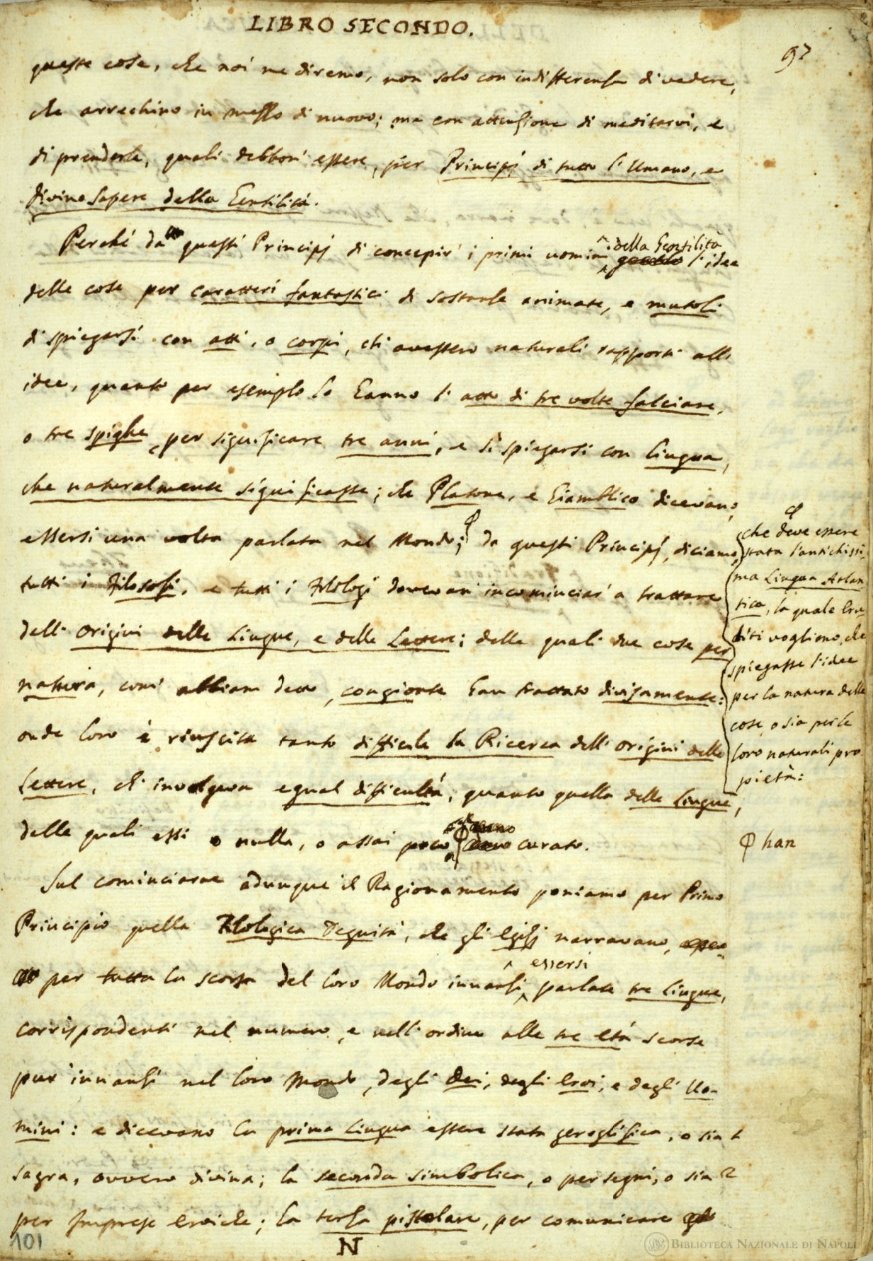 LIBRO SECONDO.
97
queste cose, che noi ne diremo, non solo con indifferenza di vedere,
che arrechino in mezzo di nuovo; ma con attenzione di meditarvi, e
di prenderle, quali debbon' essere, per Principj di tutto l'Umano, e
Divino Sapere della Gentilità.
Perchè da questi Principj di concepir' i primi uomini della Gentilità l'idee
delle cose per caratteri fantastici di sostanze animate, e mutoli
di spiegarsi con atti, o corpi, ch'avessero naturali rapporti all'
idee, quanto per esempio lo hanno l'atto di tre volte falciare,
o tre spighe per significare tre anni, e sì spiegarsi con lingua,
che naturalmente significasse; che Platone, e Giamblico dicevano,
essersi una volta parlata nel Mondo; da questi Principj, diciamo,
tutti i Filosofi, e tutti i Filologi dovevan incominciar' a trattare
dell'origini delle Lingue, e delle Lettere; delle quali due cose per
natura, com' abbiam detto, congionte han trattato divisamente:
onde loro è riuscita tanto difficile la Ricerca dell'origini delle
Lettere, ch'involgeva egual difficultà, quanto quella delle Lingue,
delle quali essi o nulla, o assai poco curato.
Sul cominciarne adunque il Ragionamento poniamo per Primo
Principio quella Filologica Degnità, che gli Egizj narravano,
per tutta la scorsa del loro Mondo innanzi essersi parlate tre Lingue,
corrispondenti nel numero, e nell'ordine alle tre età scorse
pur innanzi nel loro Mondo, degli Dei, degli Eroi, e degli Uo-
mini: e dicevano la prima lingua essere stata geroglifica, o sia
sagra, ovvero divina; la seconda simbolica, o per segni, o sia
per Imprese eroiche; la terza pistolare, per comunicare
N
che deve essere
stata l'antichissi-
ma Lingua Atlan-
tica, la quale Eru-
diti vogliono, che
spiegasse l'idee
per la natura delle
cose, o sia per le
loro naturali pro-
pietà:
han
101
BIBLIOTECA NAZIONALE DI NAPOLI